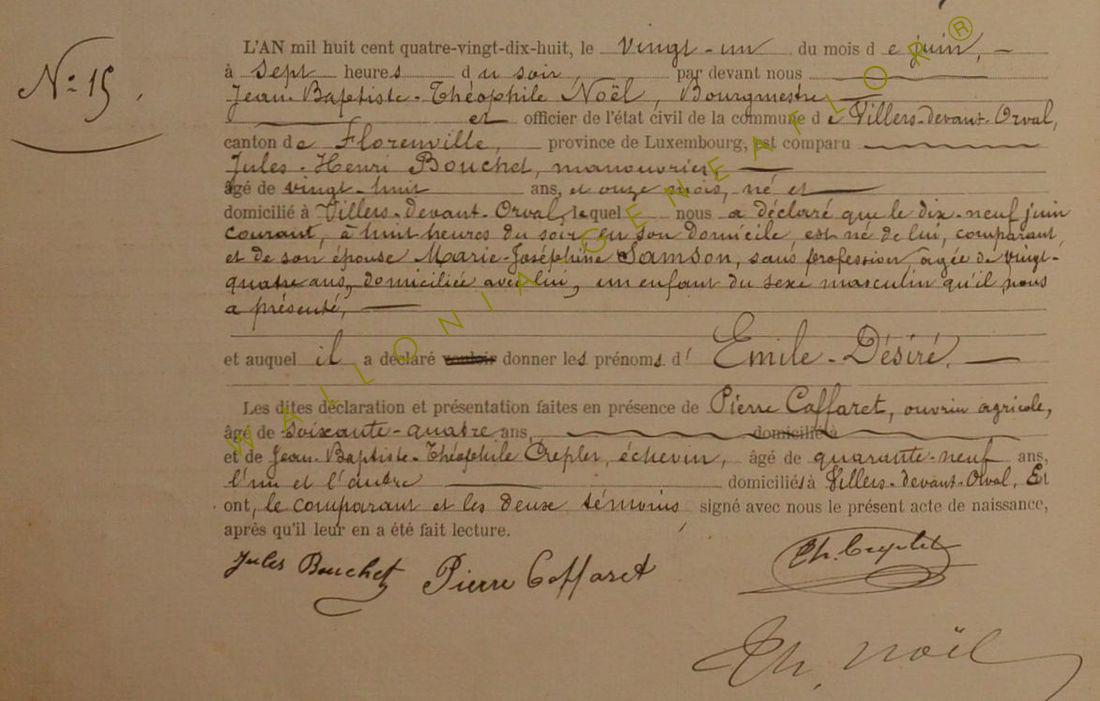 N° 15.
L'AN mil huit cent quatre-vingt-dix-huit, le vingt-un du mois de juin,
à sept heures du soir, par devant nous
Jean-Baptiste-Théophile Noël, Bourgmestre
et officier de l'état civil de la commune de Villers-devant-Orval,
canton de Florenville, province de Luxembourg, est comparu
Jules-Henri Bouchet, manouvrier,
âgé de vingt-huit ans, et onze mois, né et
domicilié à Villers-devant-Orval, lequel nous a déclaré que le dix-neuf juin
courant, à huit heures du soir, en son domicile, est né de lui, comparant,
et de son épouse Marie-Joséphine Samson, sans profession âgée de vingt-
quatre ans, domiciliée avec lui, un enfant du sexe masculin qu'il nous
a présenté,
et auquel il a déclaré vouloir donner les prénoms d' Emile-Désiré.
Les dites déclaration et présentation faites en présence de Pierre Caffaret, ouvrier agricole,
âgé de soixante-quatre ans, domicilié à
et de Jean-Baptiste-Théophile Crepler, échevin, âgé de quarante-neuf ans,
l'un et l'autre domiciliés à Villers-devant-Orval, Et
ont, le comparant et les deux témoins, signé avec nous le présent acte de naissance,
après qu'il leur en a été fait lecture.
Jules Bouchet Pierre Caffaret
Th. Noël
WALLONIA GENEAFLOR®